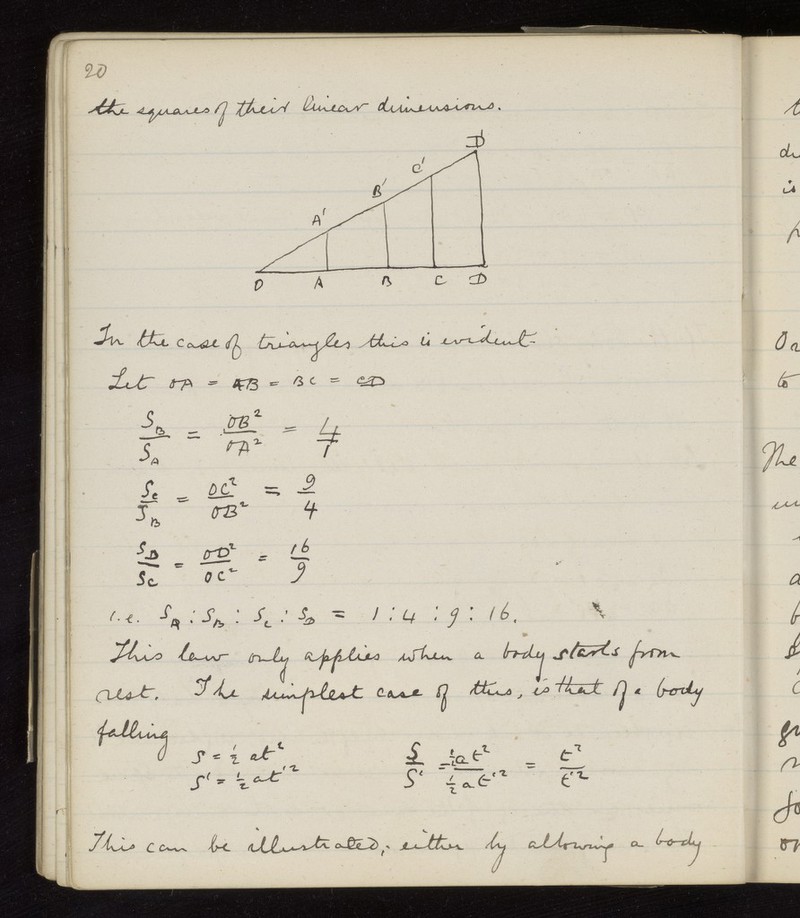 20
the squares of their linear dimensions.
D'
C'
B'
A'
O A B C D
In the case of triangles this is evident.
Let OA = AB = BC = CD
S_B/S_A = OB²/OA² = 4/1
S_C/S_B = OC²/OB² = 9/4
S_D/S_C = OD²/OC² = 16/9
i.e. S_A : S_B : S_C : S_D = 1 : 4 : 9 : 16.
This law only applies when a body starts from
rest. The simplest case of this, is that of a body
falling
S = ½ at²
S' = ½ at'²
S/S' = ½at²/½at'² = t²/t'²
This can be illustrated, either by allowing a body
is
to
The
a